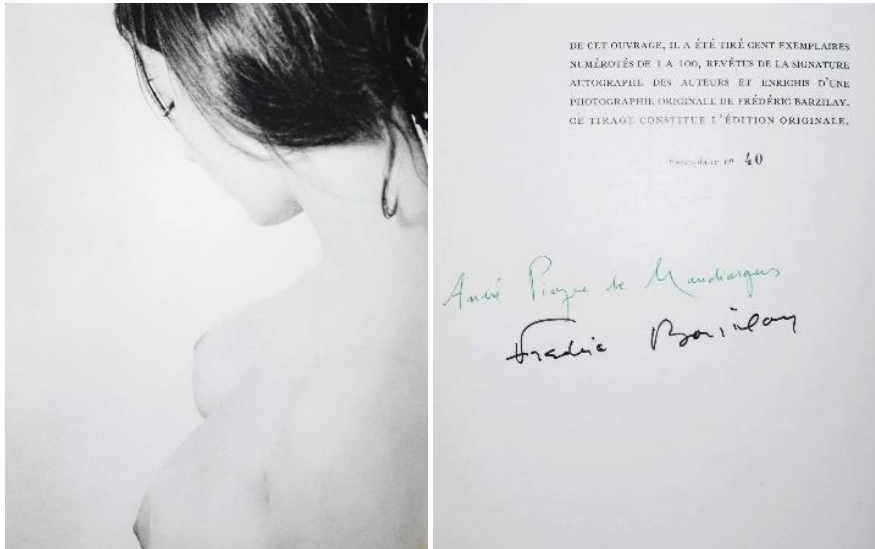 DE CET OUVRAGE, IL A ÉTÉ TIRÉ CENT EXEMPLAIRES
NUMÉROTÉS DE 1 A 100, REVÊTUS DE LA SIGNATURE
AUTOGRAPHE DES AUTEURS ET ENRICHIS D'UNE
PHOTOGRAPHIE ORIGINALE DE FRÉDÉRIC BARZILAY.
CE TIRAGE CONSTITUE L'ÉDITION ORIGINALE.
Exemplaire nº 40
André Pieyre de Mandiargues
Frédéric Barzilay